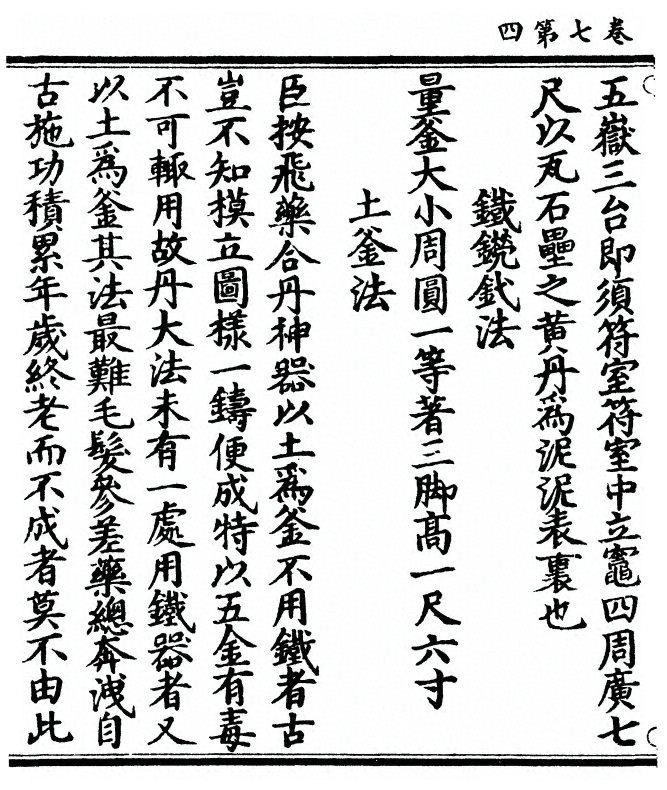 卷七第四
五嶽三台即須符室符室中立竈四周廣七
尺以瓦石壘之黄丹爲泥泥表裏也
鐵鐃釴法
量釜大小周圓一等著三脚高一尺六寸
土釜法
臣按飛藥合丹神器以土爲釜不用鐵者古
豈不知模立圖樣一鑄便成特以五金有毒
不可輙用故丹大法未有一處用鐵器者又
以土爲釜其法最難毛髮參差藥總奔洩自
古施功積累年歲終老而不成者莫不由此